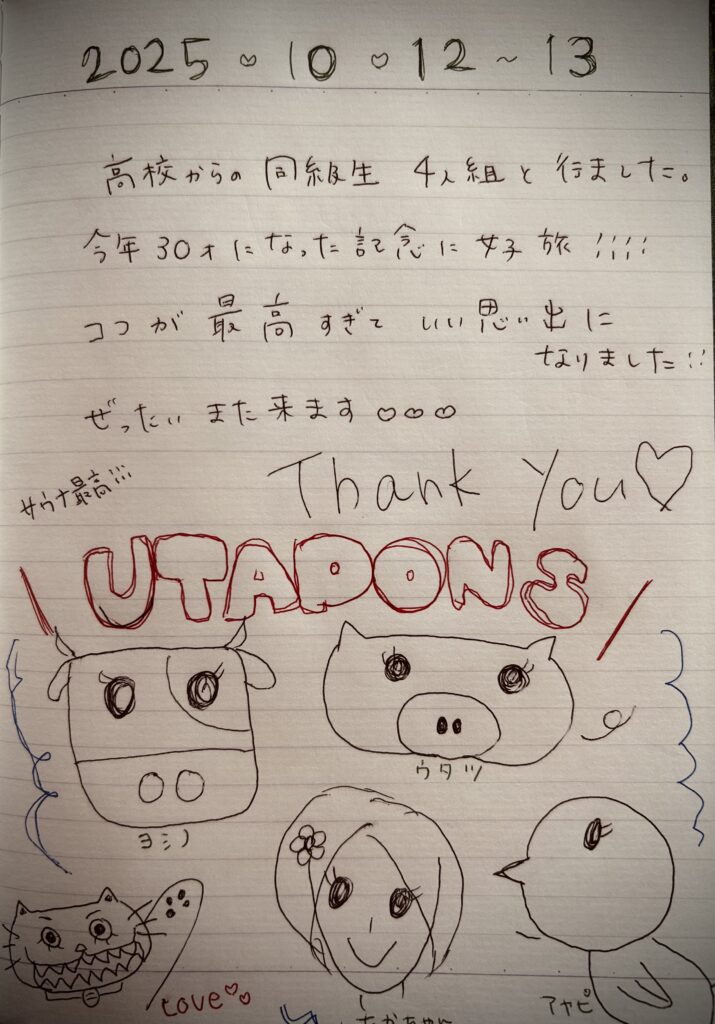 2025♡10♡12~13
高校からの同級生 4人組と行ました。
今年30才になった記念に女子旅!!!!
ココが最高すぎて いい思い出に
なりました!!
ぜったいまた来ます♡♡♡
Thank You♡
サウナ最高!!!
UTAPONS
ウタツ
ヨシノ
Love♡♡
アヤピ